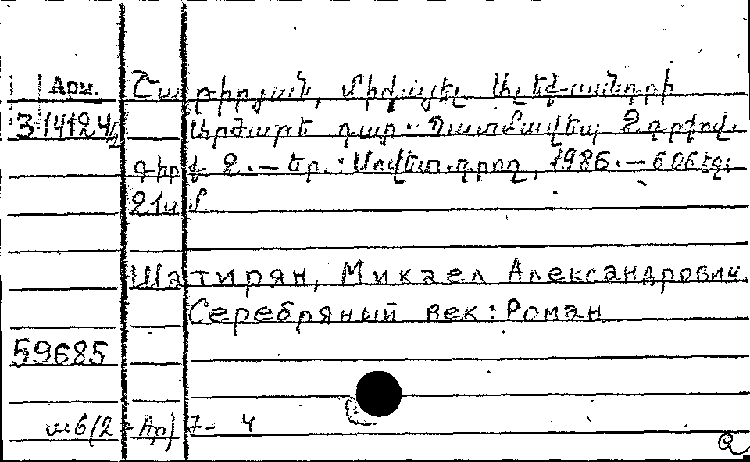 Арм. Շատիրյան, Միքայել Ալեքսանդրի
3-14124/2 Արծաթե դար: Պատմավեպ 2 գրքով.
գիրք 2. — Եր.: Սովետ. գրող, 1986. — 606 էջ;
21 սմ
Шатирян, Микаел Александрович.
Серебряный век: Роман
59685
6(2=Ар)7- 4